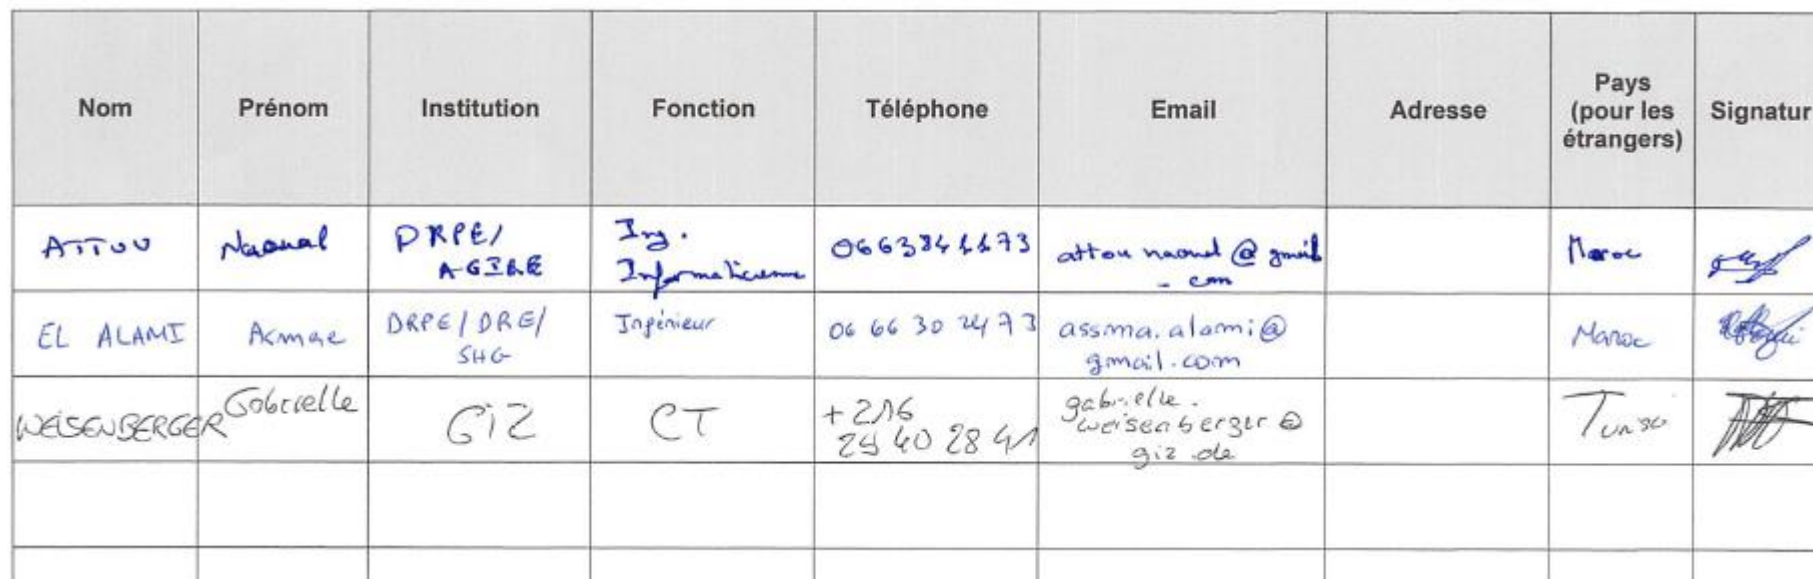 Nom Prénom Institution Fonction Téléphone Email Adresse Pays (pour les étrangers) Signatur
ATTOU Naoual DRPE/ AGIRE Ing. Informaticienne 0663841173 attou naoual @ gmail . com Maroc
EL ALAMI Asmae DRPE/DRE/ SHG Ingénieur 06 66 30 24 73 assma.alami@ gmail.com Maroc
WEISENBERGER Gabrielle GIZ CT +216 29 40 28 41 gabrielle. weisenberger@ giz.de